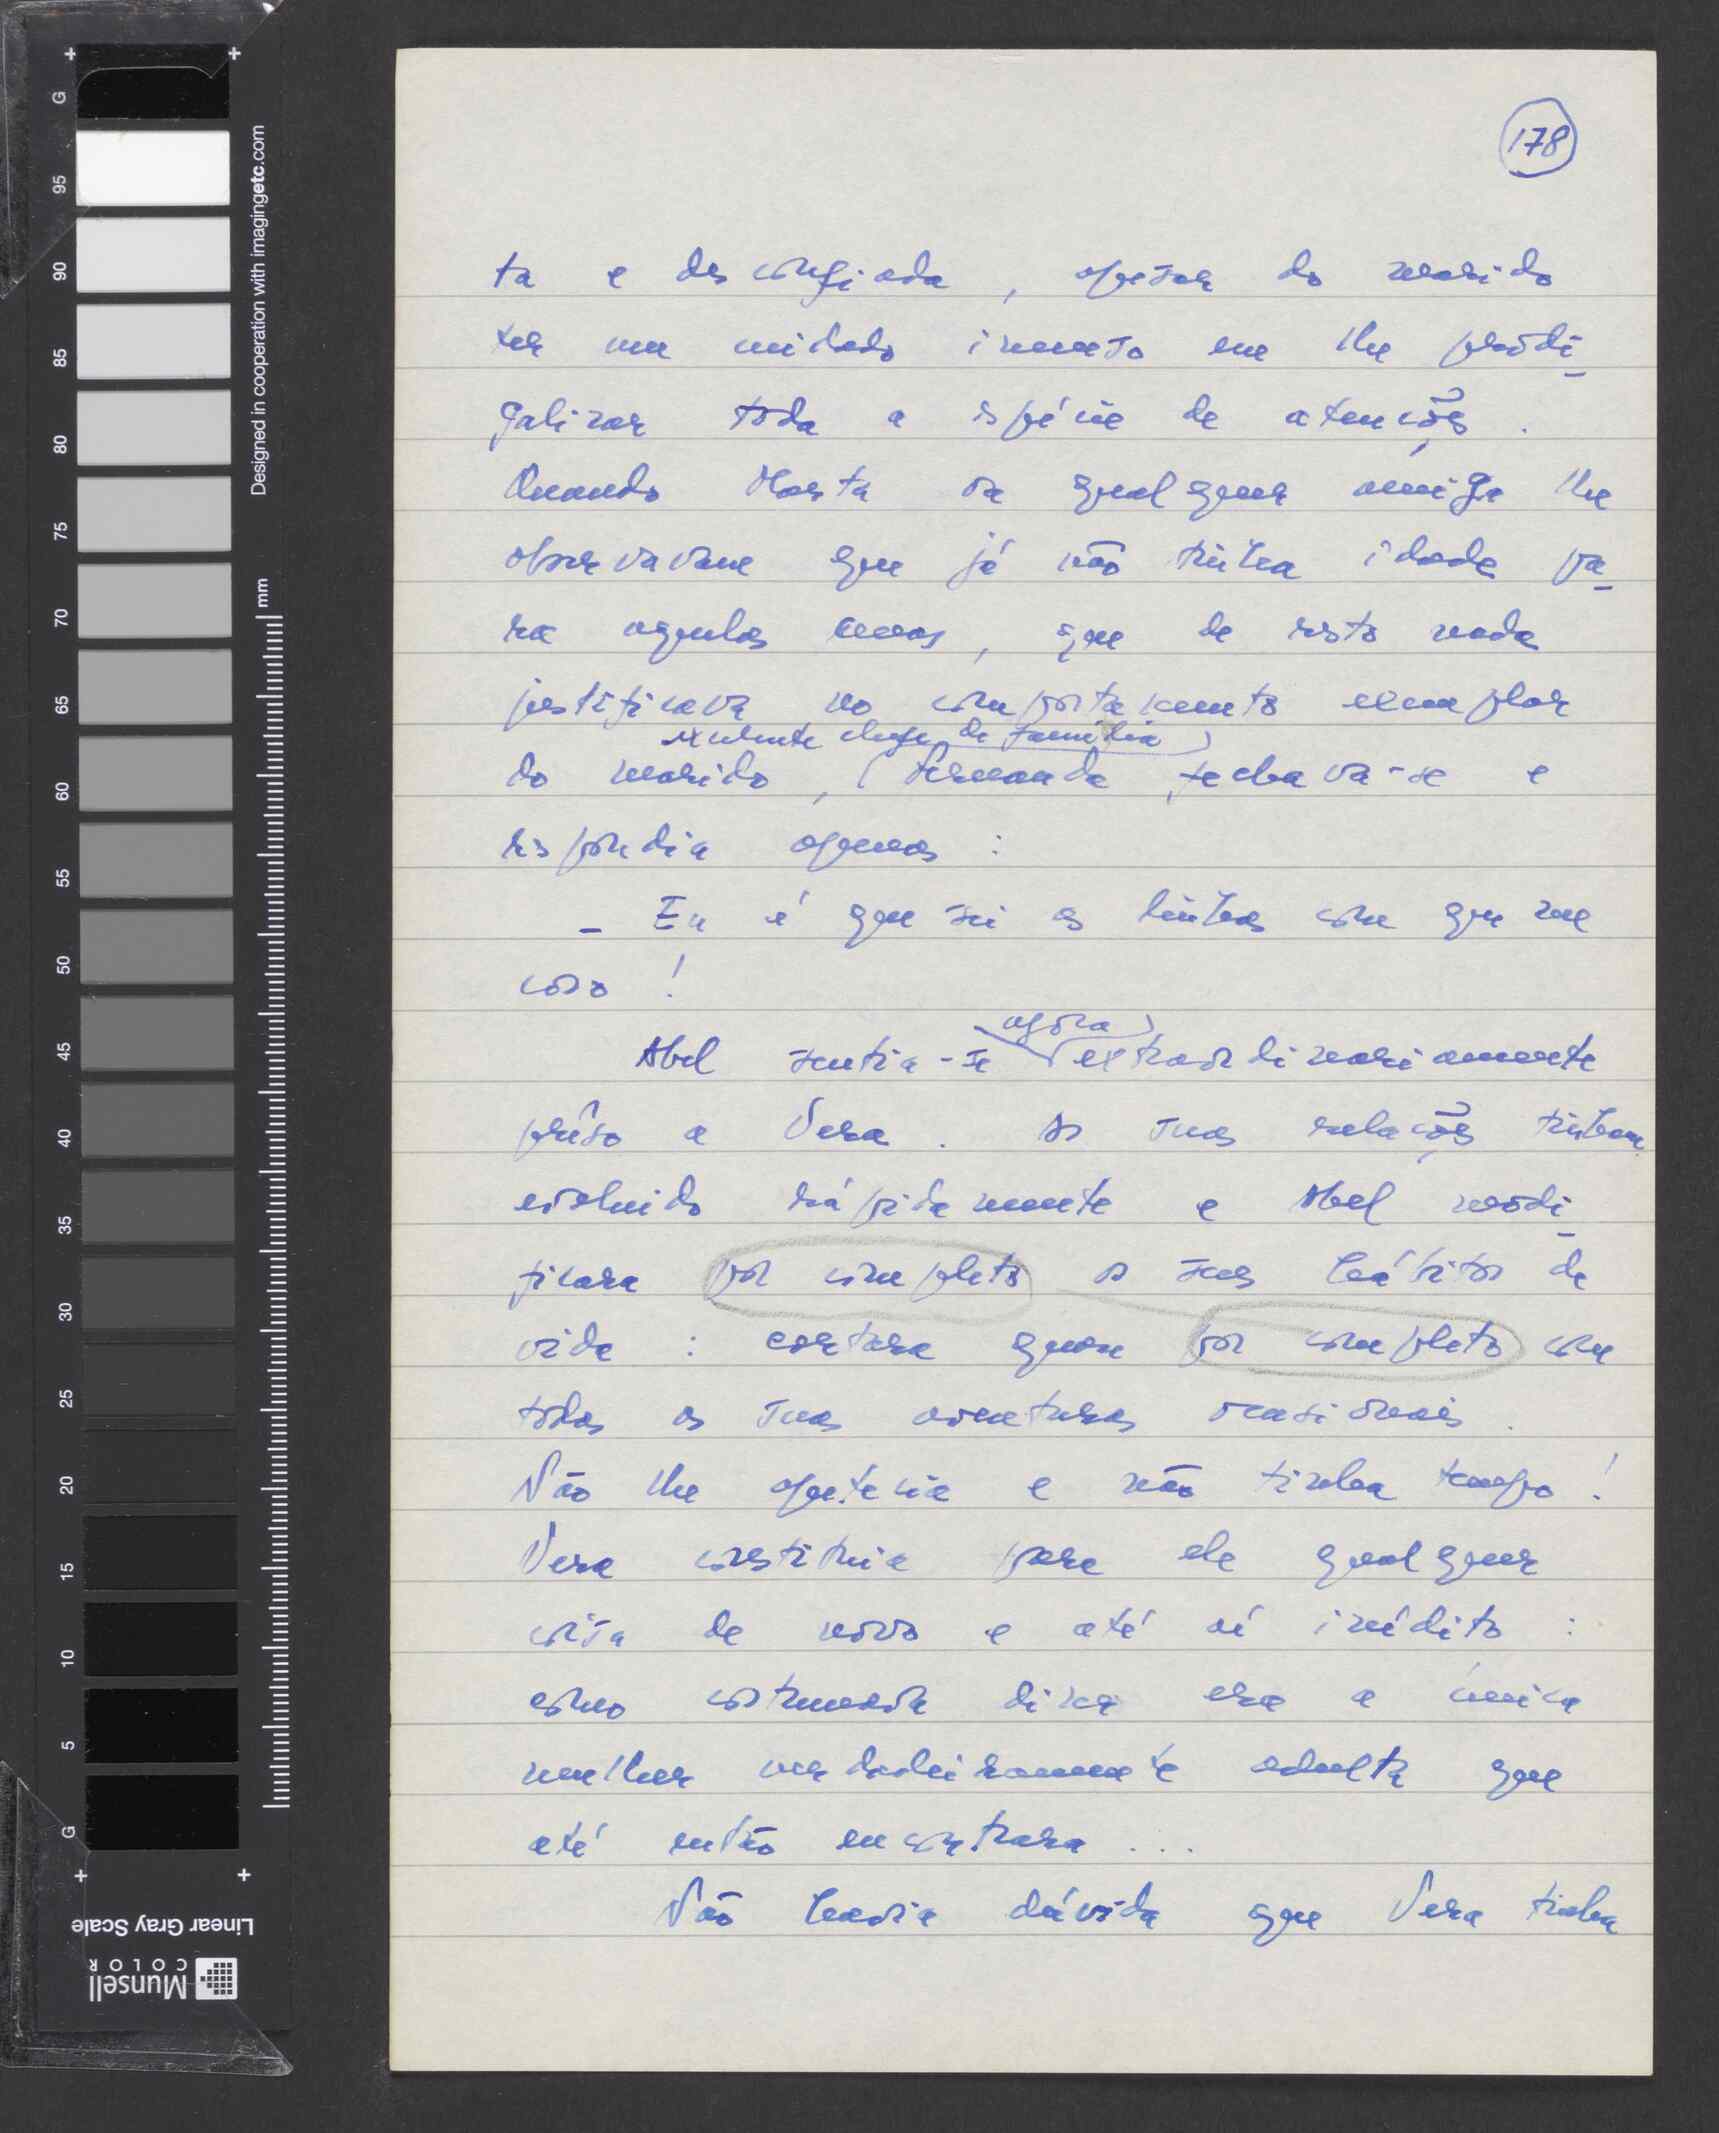 178
ta e desconfiada, apesar do marido
ter um cuidado imenso em lhe prodi-
galizar toda a espécie de atenções.
Quando Marta ou qualquer amiga lhe
observavam que já não tinha idade pa-
ra aquelas cenas, que de resto nada
justificava no comportamento exemplar
excelente chefe de família
do marido, Fernanda fechava-se e
respondia apenas:
- Eu é que sei as linhas com que me
coso!
agora
Abel sentia-se extraordinariamente
prêso a Vera. As suas relações tinham
evoluido rápidamente e Abel modi-
ficara por completo os seus hábitos de
vida: cortara quase por completo com
todas as suas aventuras ocasionais.
Não lhe apetecia e não tinha tempo!
Vera constituia para ele qualquer
coisa de novo e até aí inédito:
como costumava dizer era a única
mulher verdadeiramente adulta que
até então encontrara...
Não havia dúvida que Vera tinha
G
95
90
85
80
75
70
65
60
55
50
45
40
35
30
25
20
15
10
5
G
Designed in cooperation with imagingetc.com
mm
Linear Gray Scale
Munsell
COLOR